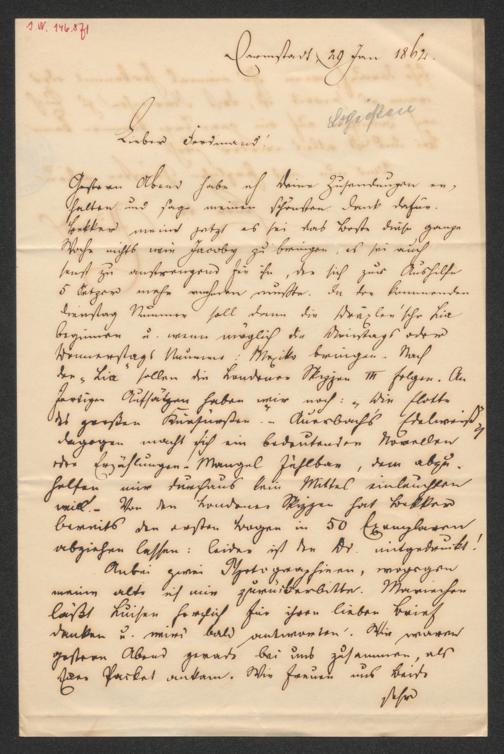 I.N. 146.871
Darmstadt, 29 Jan 1862.
Lieber Ferdinand!
Gestern Abend habe ich Deine Zusendungen er,
halten und sage meinen schönsten Dank dafür.
Bekker meint jetzt es sei das Beste diese ganze
Woche nichts wie Jacoby zu bringen, es sei auch
sonst zu anstrengend für ihn, der sich zur Aushilfe
5 Setzer mehr mußte. In der kommenden
Dienstag Nummer soll dann die Dräxler'sche Lia
beginnen u. wenn möglich die Dienstags oder
Donnerstags Nummer: Mexiko bringen. Nach
der "Lia" sollen die Londoner Skizzen III folgen. An
fertigen Aufsätzen haben wir noch: "Die Flotte
des großen Kurfürsten. - Auerbachs Edelweiß
dagegen macht sich ein bedeutender Novellen
oder Erzählungen-Mangel fühlbar, dem abzu-
helfen mir durchaus kein Mittel einleuchten
will. - Von den Londoner Skizzen hat Bekker
bereits den ersten Bogen in 50 Exemplaren
abziehen lassen: leider ist der Dr. mitgedruckt!
Anbei zwei Photographieen, wogegen
meine alte ich mir zurückerbitte. Mariechen
läßt Luisen herzlich für ihren lieben Brief
danken u. wird bald antworten. Wir waren
gestern Abend gerade bei uns zusammen, als
Packet ankam. Wir freuen uns beide
sehr